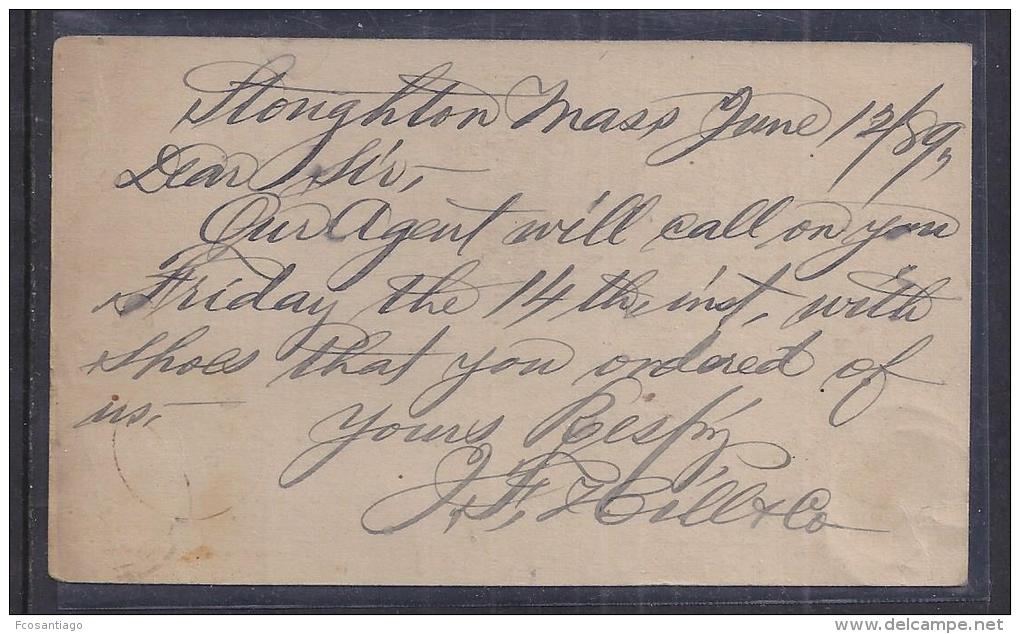 Stoughton Mass June 12/89,
Dear Sir,-
Our Agent will call on you
Friday the 14th, inst, with
Shoes that you ordered of
us,-
Yours Resp'y
J. F. Hill & Co
Fcosantiago
delcampe.net